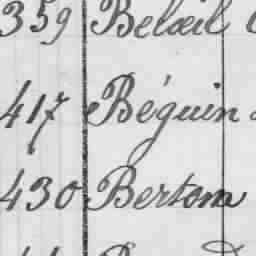 359 Belœil
417 Béguin
430 Bertom